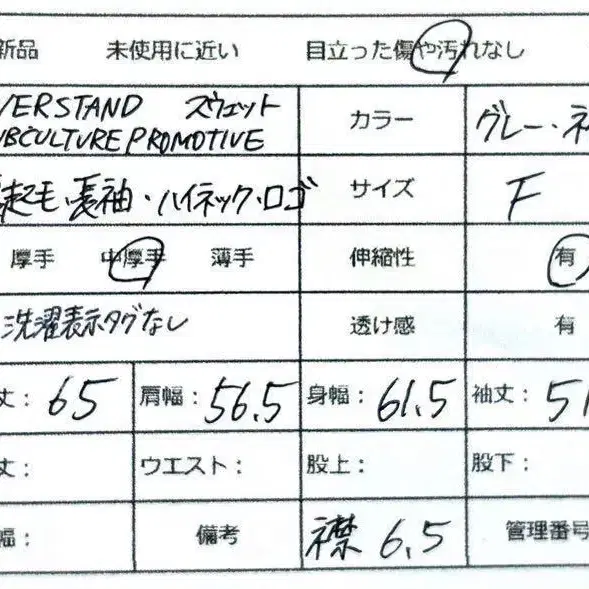 新品 未使用に近い 目立った傷や汚れなし
VERSTAND スウェット カラー グレー・ネ
UBCULTURE PROMOTIVE
起毛・長袖・ハイネック・ロゴ サイズ F
厚手 中厚手 薄手 伸縮性 有
洗濯表示タグなし 透け感 有
丈: 65 肩幅: 56.5 身幅: 61.5 袖丈: 51
丈: ウエスト: 股上: 股下:
幅: 備考 襟 6.5 管理番号